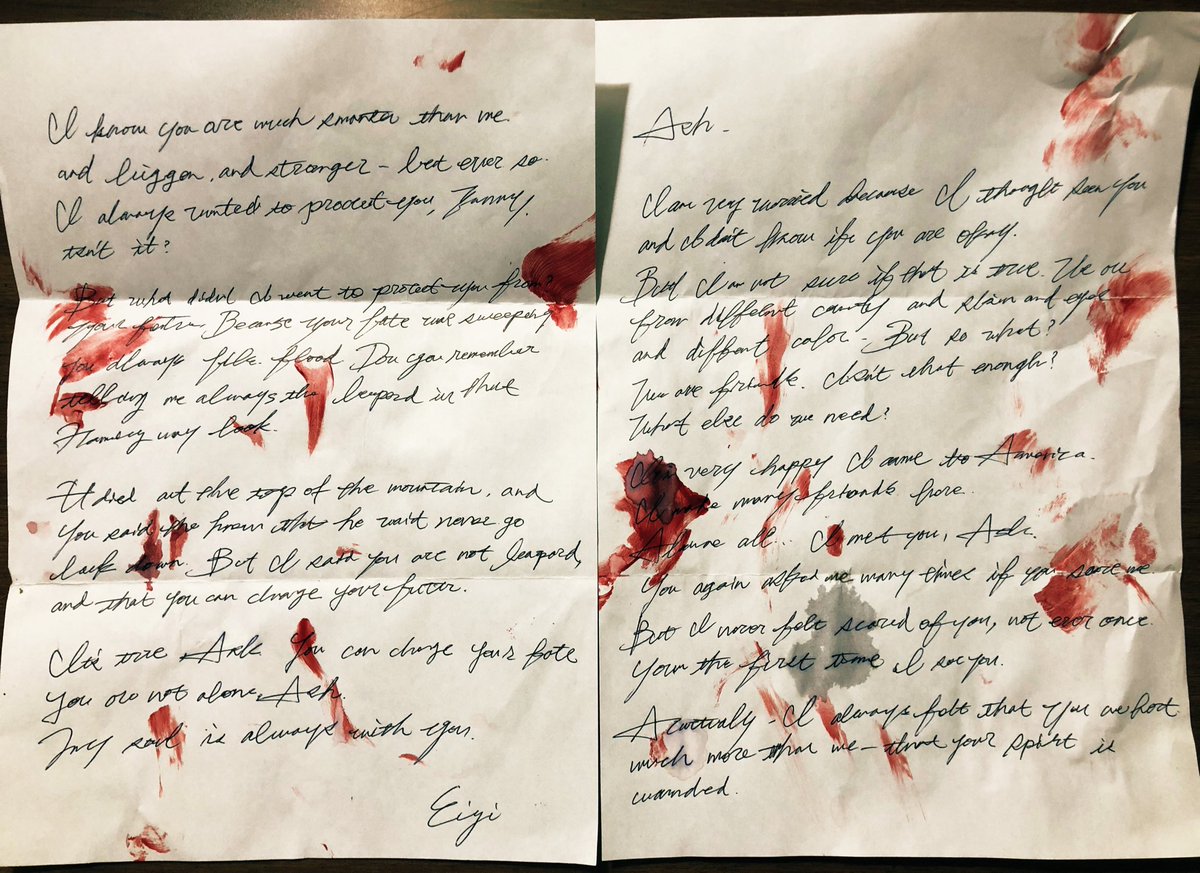 Ash -
I am very worried because I thought seen you
and I don't know if you are okay.
But I am not sure if that is true. We are
from different country and skin and eyes
and diffent color - But so what?
We are friends. Isn't that enough?
What else do we need?
I am very happy I came to America.
I make many friends here.
Above all.. I met you, Ash.
You again asked me many times if you scare me.
But I never felt scared of you, not ever once.
the first time I see you.
Acurtually - I always felt that you are hurt
much more than me - that your spirit is
wounded.
I know you are much smarter than me.
and bigger, and stronger - but ever so.
I always wanted to protect you, Funny,
isn't it?
But what didnt I want to protect you from?
Your Because your fate was sweeping
you always like flood. Do you remember
telling me always the leopard in that
Hemingway book.
It died at the top of the mountain, and
you said the that he never go
back down. But I said you are not leopard,
and that you can change your futur.
It's true Ash. You can change your fate
you are not alone, Ash.
My soul is always with you.
Eiji